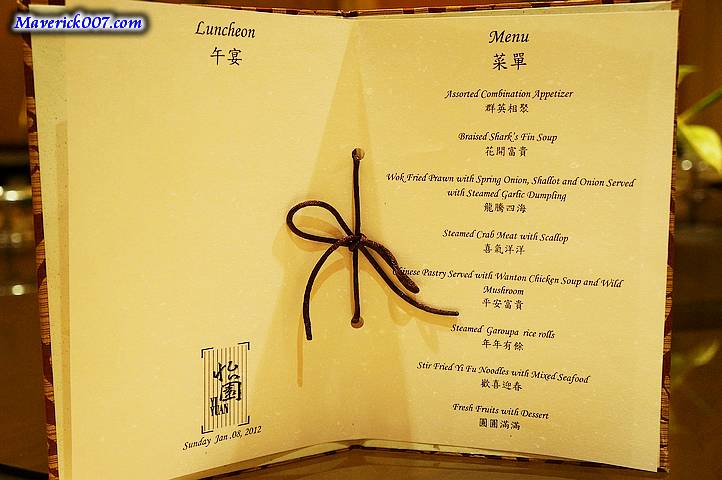 Maverick007.com
Luncheon
午宴
怡園
YI YUAN
Sunday Jan .08, 2012
Menu
菜單
Assorted Combination Appetizer
群英相聚
Braised Shark's Fin Soup
花開富貴
Wok Fried Prawn with Spring Onion, Shallot and Onion Served
with Steamed Garlic Dumpling
龍騰四海
Steamed Crab Meat with Scallop
喜氣洋洋
Chinese Pastry Served with Wanton Chicken Soup and Wild
Mushroom
平安富貴
Steamed Garoupa rice rolls
年年有餘
Stir Fried Yi Fu Noodles with Mixed Seafood
歡喜迎春
Fresh Fruits with Dessert
團團滿滿